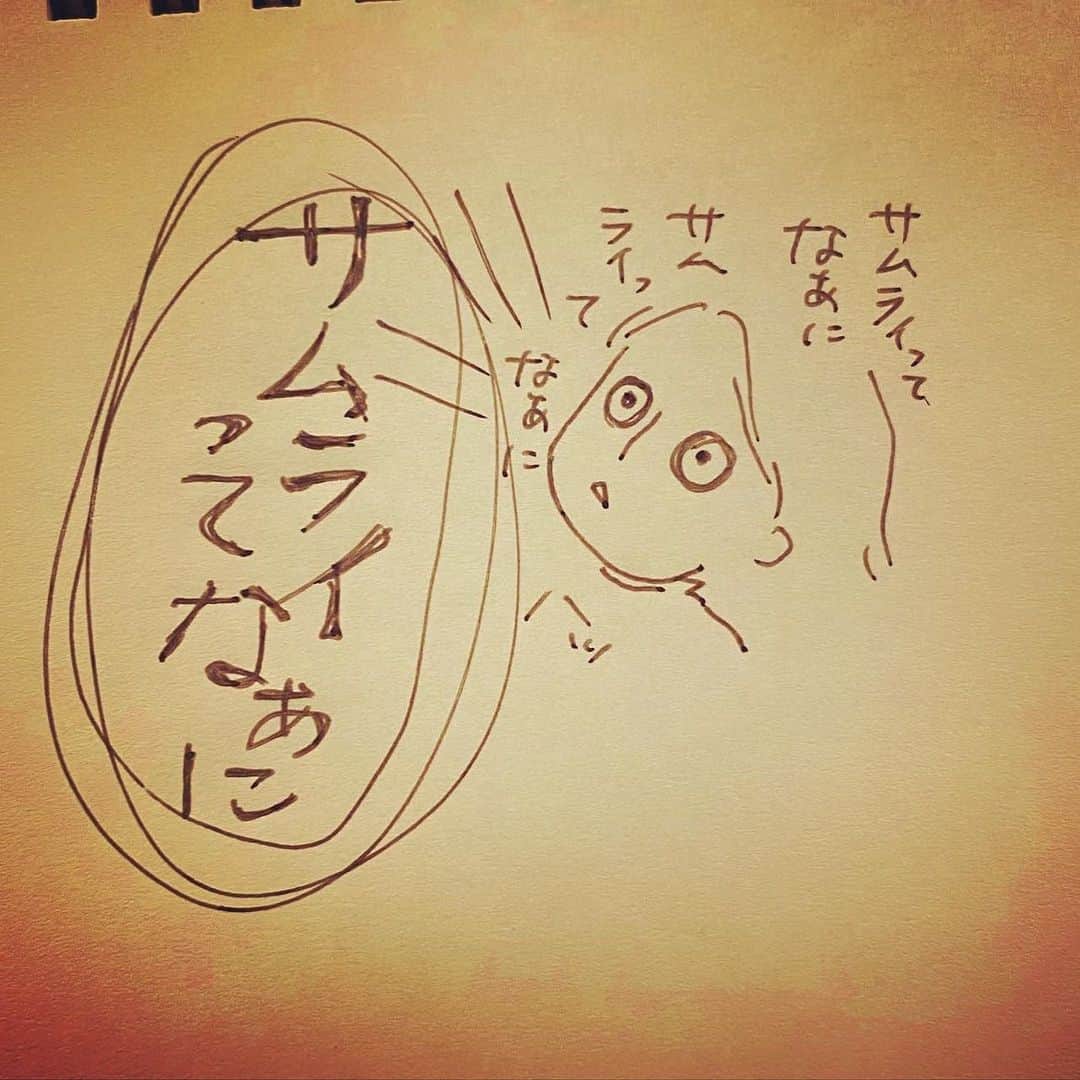 サムライって
なあに
サム
ライっ
て
なあに
ハッ
サムライ
ってなあに